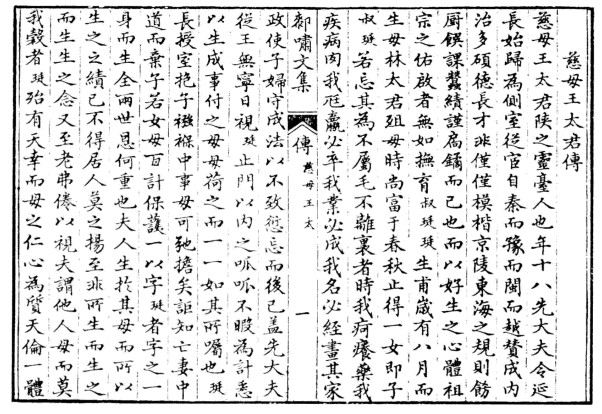 慈母王太君傳
慈母王太君陜之靈臺人也年十八先大夫令延
長始歸為側室從官自秦而豫而閩而越贊成内
治多碩德長才非僅僅模楷京陵東海之規則飭
厨饌課蠶績謹扃鐍而已也而以好生之心體祖
宗之佑啟者無如撫育叔珽珽生甫歲有八月而
生母林太君殂母時尚富于春秋止得一女即子
叔珽若忘其為不屬毛不離裏者時我疴癢藥我
疾病肉我尫羸必卒我業必成我名必經畫其家
郝嘯文集
傳
慈母王太
一
政使子婦守成法以不致愆忘而後已蓋先大夫
從王無寧日視珽止門以内之呱呱不暇為計悉
以生成事付之母母荷之而一一如其所囑也珽
長授室抱子襁褓中事母可弛擔矣詎知亡妻中
道而棄子若女母百計保護一以字珽者字之一
身而生全兩世恩何重也夫人生於其母而所以
生之之績已不得居人莫之揚至非所生而生之
而生生之念又至老弗倦以視夫謂他人母而莫
我穀者珽殆有天幸而母之仁心為質天倫一體